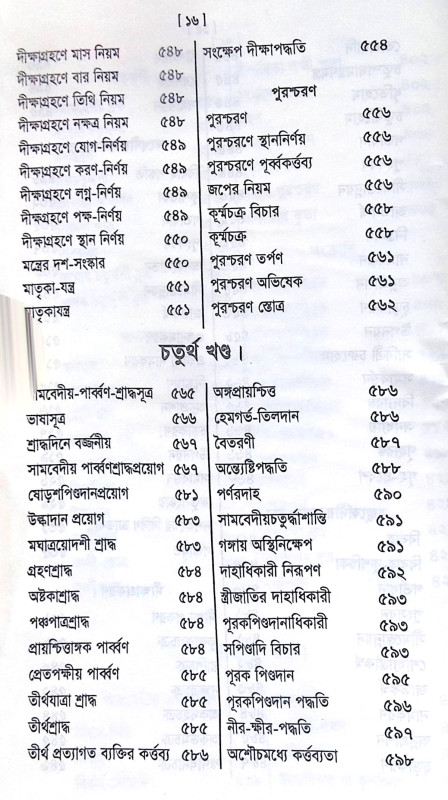 [ ১৬ ]
দীক্ষাগ্রহণে মাস নিয়ম ৫৪৮
দীক্ষাগ্রহণে বার নিয়ম ৫৪৮
দীক্ষাগ্রহণে তিথি নিয়ম ৫৪৮
দীক্ষাগ্রহণে নক্ষত্র নিয়ম ৫৪৮
দীক্ষাগ্রহণে যোগ-নির্ণয় ৫৪৯
দীক্ষাগ্রহণে করণ-নির্ণয় ৫৪৯
দীক্ষাগ্রহণে লগ্ন-নির্ণয় ৫৪৯
দীক্ষাগ্রহণে পক্ষ-নির্ণয় ৫৪৯
দীক্ষাগ্রহণে স্থান নির্ণয় ৫৫০
মন্ত্রের দশ-সংস্কার ৫৫০
মাতৃকা-যন্ত্র ৫৫১
মাতৃকাযন্ত্র ৫৫১
সংক্ষেপ দীক্ষাপদ্ধতি ৫৫৪
পুরশ্চরণ
পুরশ্চরণ ৫৫৬
পুরশ্চরণে স্থাননির্ণয় ৫৫৬
পুরশ্চরণে পূর্ব্বকর্ত্তব্য ৫৫৬
জপের নিয়ম ৫৫৬
কূর্ম্মচক্র বিচার ৫৫৮
কূর্ম্মচক্র ৫৫৮
পুরশ্চরণ তর্পণ ৫৬১
পুরশ্চরণ অভিষেক ৫৬১
পুরশ্চরণ স্তোত্র ৫৬২
চতুর্থ খণ্ড।
ামবেদীয়-পার্ব্বণ-শ্রাদ্ধসূত্র ৫৬৫
ভাষাসূত্র ৫৬৬
শ্রাদ্ধদিনে বর্জ্জনীয় ৫৬৭
সামবেদীয় পার্ব্বণশ্রাদ্ধপ্রয়োগ ৫৬৭
ষোড়শপিণ্ডদানপ্রয়োগ ৫৮১
উল্কাদান প্রয়োগ ৫৮৩
মঘাত্রয়োদশী শ্রাদ্ধ ৫৮৩
গ্রহণশ্রাদ্ধ ৫৮৪
অষ্টকাশ্রাদ্ধ ৫৮৪
পঞ্চপাত্রশ্রাদ্ধ ৫৮৪
প্রায়শ্চিত্তাঙ্গক পার্ব্বণ ৫৮৪
প্রেতপক্ষীয় পার্ব্বণ ৫৮৫
তীর্থযাত্রা শ্রাদ্ধ ৫৮৫
তীর্থশ্রাদ্ধ ৫৮৫
তীর্থ প্রত্যাগত ব্যক্তির কর্ত্তব্য ৫৮৬
অঙ্গপ্রায়শ্চিত্ত ৫৮৬
হেমগর্ভ-তিলদান ৫৮৬
বৈতরণী ৫৮৭
অন্ত্যেষ্টিপদ্ধতি ৫৮৮
পর্ণরদাহ ৫৯০
সামবেদীয়চতুর্দ্ধাশান্তি ৫৯১
গঙ্গায় অস্থিনিক্ষেপ ৫৯১
দাহাধিকারী নিরূপণ ৫৯২
স্ত্রীজাতির দাহাধিকারী ৫৯৩
পূরকপিণ্ডদানাধিকারী ৫৯৩
সপিণ্ডাদি বিচার ৫৯৩
পূরক পিণ্ডদান ৫৯৫
পূরকপিণ্ডদান পদ্ধতি ৫৯৬
নীর-ক্ষীর-পদ্ধতি ৫৯৭
অশৌচমধ্যে কর্ত্তব্যতা ৫৯৮